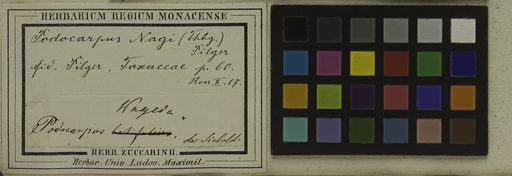 HERBARIUM REGIUM MONACENSE
Podocarpus Nagi (Thbg.)
Pilger
fid. Pilger, Taxaceae p. 60.
X. 07.
Nageia
Podocarpus
de Siebold.
HERB. ZUCCARINII.
Herbar. Univ. Ludov. Maximil.